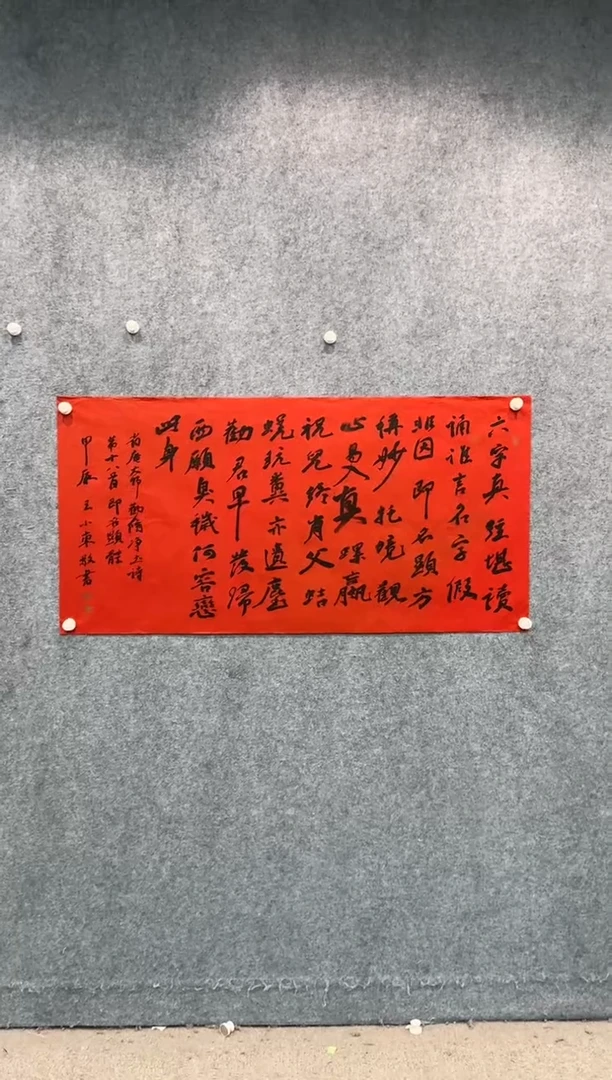 六字真經堪讀
誦誰言名字假
非因即名顯方
稱妙托境觀
心易入真蜾蠃
祝兒終肖父蛣
蜣玩糞亦遺塵
勸君早發歸
西願臭穢何容戀
此身
省庵大師勸脩淨土詩
第十八首即名顯體
甲辰王小東敬書